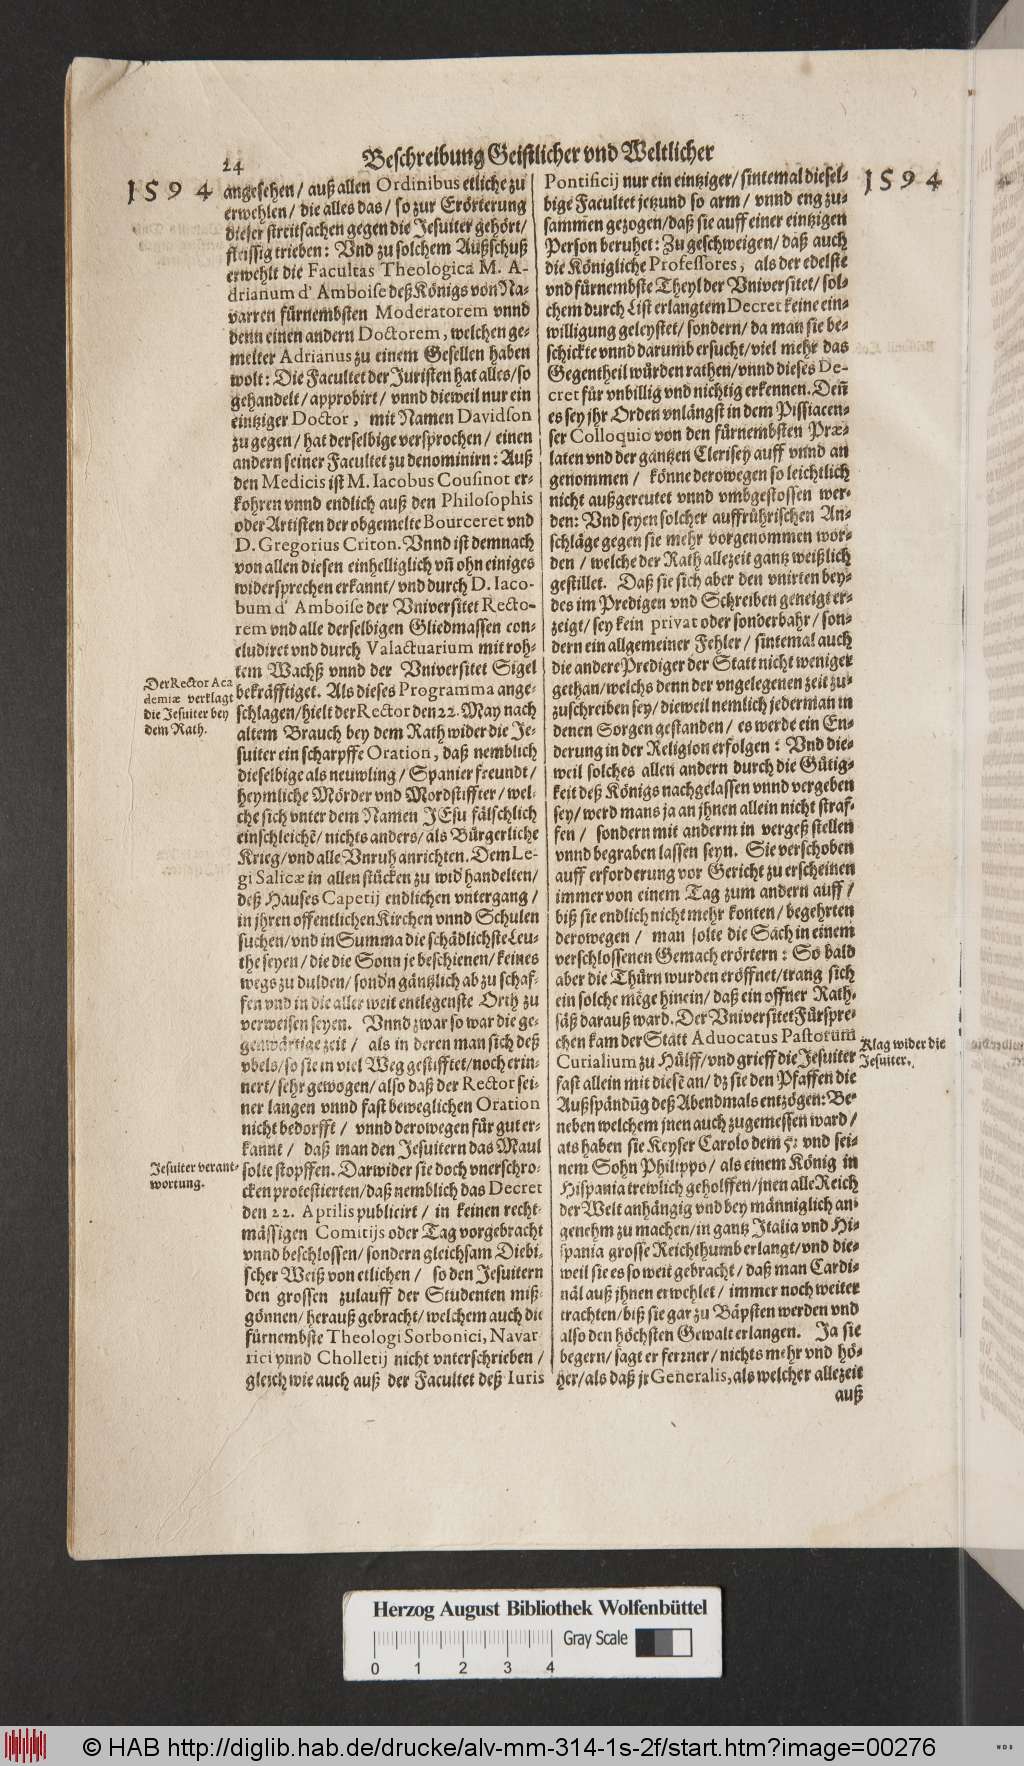 24
Beschreibung Geistlicher vnd Weltlicher
1594
angesehen / auß allen Ordinibus etliche zu
erwehlen / die alles das / so zur Erörterung
dieser streitsachen gegen die Jesuiter gehört /
fleissig trieben: Vnd zu solchem Außschuß
erwehlt die Facultas Theologica M. A-
drianum d' Amboise deß Königs von Na-
varren fürnembsten Moderatorem vnnd
denn einen andern Doctorem, welchen ge-
melter Adrianus zu einem Gesellen haben
wolt: Die Facultet der Juristen hat alles / so
gehandelt / approbirt / vnnd dieweil nur ein
eintziger Doctor, mit Namen Davidson
zu gegen / hat derselbige versprochen / einen
andern seiner Facultet zu denominirn: Auß
den Medicis ist M. Iacobus Cousinot er-
kohren vnnd endlich auß den Philosophis
oder Artisten der obgemelte Bourceret vnd
D. Gregorius Criton. Vnnd ist demnach
von allen diesen einhelliglich vñ ohn einiges
widersprechen erkannt / vnd durch D. Iaco-
bum d' Amboise der Vniversitet Recto-
rem vnd alle derselbigen Gliedmassen con-
cludiret vnd durch Valactuarium mit roh-
tem Wachß vnnd der Vniversitet Sigel
bekräfftiget. Als dieses Programma ange-
schlagen / hielt der Rector den 22. May nach
altem Brauch bey dem Rath wider die Je-
suiter ein scharpffe Oration, daß nemblich
dieselbige als neuwling / Spanier freundt /
heymliche Mörder vnd Mordstiffter / wel-
che sich vnter dem Namen JEsu fälschlich
einschleichẽ / nichts anders / als Bürgerliche
Krieg / vnd alle Vnruh anrichten. Dem Le-
gi Salicæ in allen stücken zu wid' handelten /
deß Hauses Caperij endlichen vntergang /
in jhren offentlichen Kirchen vnnd Schulen
suchen / vnd in Summa die schädlichste Leu-
the seyen / die die Sonn je beschienen / keines
wegs zu dulden / sond'n gäntzlich ab zu schaf-
fen vnd in die aller weit entlegenste Orth zu
verweisen seyen. Vnnd zwar so war die ge-
genwärtige zeit / als in deren man sich deß
vbels / so sie in viel Weg gestifftet / noch erin-
nert / sehr gewogen / also daß der Rector sei-
ner langen vnnd fast beweglichen Oration
nicht bedorfft / vnnd derowegen für gut er-
kannt / daß man den Jesuitern das Maul
solte stopffen. Darwider sie doch vnerschro-
cken protestierten / daß nemblich das Decret
den 22. Aprilis publicirt / in keinen recht-
mässigen Comitijs oder Tag vorgebracht
vnnd beschlossen / sondern gleichsam Diebi-
scher Weiß von etlichen / so den Jesuitern
den grossen zulauff der Studenten miß-
gönnen / herauß gebracht / welchem auch die
fürnembste Theologi Sorbonici, Navar-
rici vnnd Cholletij nicht vnterschrieben /
gleich wie auch auß der Facultet deß Iuris
Der Rector Aca
demiæ verklagt
die Jesuiter bey
dem Rath.
Jesuiter verant-
wortung.
1594
Pontificij nur ein eintziger / sintemal diesel-
bige Facultet jetzund so arm / vnnd eng zu-
sammen gezogen / daß sie auff einer eintzigen
Person beruhet: Zu geschweigen / daß auch
die Königliche Professores, als der edelste
vnd fürnembste Theyl der Vniversitet / sol-
chem durch List erlangtem Decret keine ein-
willigung geleystet / sondern / da man sie be-
schickte vnnd darumb ersucht / viel mehr das
Gegentheil würden rathen / vnnd dieses De-
cret für vnbillig vnd nichtig erkennen. Deñ
es sey jhr Orden vnlängst in dem Pissiacen-
ser Colloquio von den fürnembsten Præ-
laten vnd der gantzen Clerisey auff vnnd an
genommen / könne derowegen so leichtlich
nicht außgereutet vnnd vmbgestossen wer-
den: Vnd seyen solcher auffrührischen An-
schläge gegen sie mehr vorgenommen wor-
den / welche der Rath allezeit gantz weißlich
gestillet. Daß sie sich aber den vnirten bey-
des im Predigen vnd Schreiben geneigt er-
zeigt / sey kein privat oder sonderbahr / son-
dern ein allgemeiner Fehler / sintemal auch
die andere Prediger der Statt nicht weniger
gethan / welchs denn der vngelegenen zeit zu-
zuschreiben sey / dieweil nemlich jederman in
denen Sorgen gestanden / es werde ein En-
derung in der Religion erfolgen: Vnd die-
weil solches allen andern durch die Gütig-
keit deß Königs nachgelassen vnnd vergeben
sey / werd mans ja an jhnen allein nicht straf-
fen / sondern mit anderm in vergeß stellen
vnnd begraben lassen seyn. Sie verschoben
auff erforderung vor Gericht zu erscheinen
immer von einem Tag zum andern auff /
biß sie endlich nicht mehr konten / begehrten
derowegen / man solte die Sach in einem
verschlossenen Gemach erörtern: So bald
aber die Thürn wurden eröffnet / trang sich
ein solche mẽge hinein / daß ein offner Rath-
säß darauß ward. Der Vniversitet Fürspre-
chen kam der Statt Aduocatus Pastorum
Curialium zu Hülff / vnd grieff die Jesuiter
fast allein mit diesẽ an / dz sie den Pfaffen die
Außspändũg deß Abendmals entzögen: Be-
neben welchem jnen auch zugemessen ward /
als haben sie Keyser Carolo dem 5. vnd sei-
nem Sohn Philippo / als einem König in
Hispania trewlich geholffen / jnen alle Reich
der Welt anhängig vnd bey männiglich an-
genehm zu machen / in gantz Italia vnd Hi-
spania grosse Reichthumb erlangt / vnd die-
weil sie es so weit gebracht / daß man Cardi-
näl auß jhnen erwehlet / immer noch weiter
trachten / biß sie gar zu Bäpsten werden vnd
also den höchsten Gewalt erlangen. Ja sie
begern / sagt er ferrner / nichts mehr vnd hö-
her / als daß jr Generalis, als welcher allezeit
auß
Klag wider die
Jesuiter.
Herzog August Bibliothek Wolfenbüttel
Gray Scale
0 1 2 3 4
© HAB http://diglib.hab.de/drucke/alv-mm-314-1s-2f/start.htm?image=00276